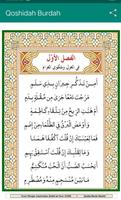 Qoshidah Burdah
الفصل الأول
في الغزل وشكوى الغرام
أَمِنْ تَذَكُّرِ جِيرَانٍ بِذِي سَلَمِ
مَزَجْتَ دَمْعًا جَرَى مِنْ مُقْلَةٍ بِدَمِ
أَمْ هَبَّتِ الرِّيحُ مِنْ تِلْقَاءِ كَاظِمَةٍ
وَأَوْمَضَ الْبَرْقُ فِي الظَّلْمَاءِ مِنْ إِضَمِ
فَمَا لِعَيْنَيْكَ إِنْ قُلْتَ اكْفُفَا هَمَتَا
وَمَا لِقَلْبِكَ إِنْ قُلْتَ اسْتَفِقْ يَهِمِ
أَيَحْسَبُ الصَّبُّ أَنَّ الْحُبَّ مُنْكَتِمٌ